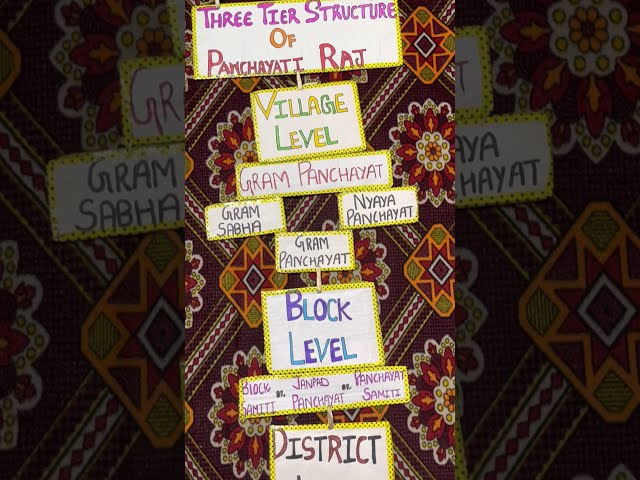 THREE TIER STRUCTURE
OF
PANCHAYATI RAJ
VILLAGE
LEVEL
GRAM PANCHAYAT
GRAM
SABHA
NYAYA
PANCHAYAT
GRAM
PANCHAYAT
BLOCK
LEVEL
BLOCK SAMITI OR JANPAD PANCHAYAT OR PANCHAYAT SAMITI
DISTRICT
GRAM
GRAM
SABHA
YA
HAYAT